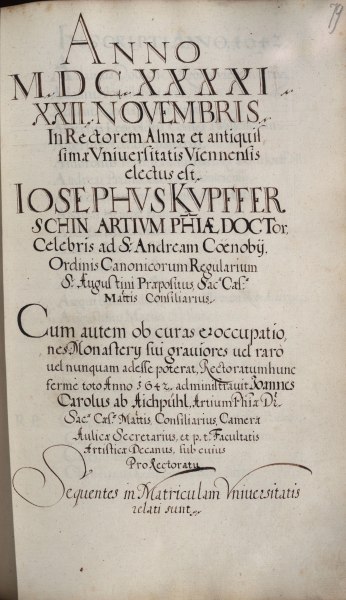 79
ANNO
M.DC.XXXXI
XXII. NOVEMBRIS.
In Rectorem Almæ et antiquis
simæ Vniuersitatis Viennensis
electus est.
IOSEPHVS KVPFFER
SCHIN ARTIVM PHIÆ DOCTor,
Celebris ad S. Andream Cœnobij.
Ordinis Canonicorum Regularium
S. Augustini Præpositus, Sac. Cæs.
Mattis Consiliarius.
Cum autem ob curas et occupatio,
nes Monastery sui grauiores uel raro
uel nunquam adesse poterat, Rectoratum hunc
ferme toto Anno 1642. administrauit Ioannes
Carolus ab Aichpühl, Artium Phiæ Dr.
Sac. Cæs. Mattis. Consiliarius, Cameræ
Aulicæ Secretarius, et p. t. Facultatis
Artisticæ Decanus, sub cuius
ProRectoratu
Sequentes in Matriculam Vniuersitatis
relati sunt.